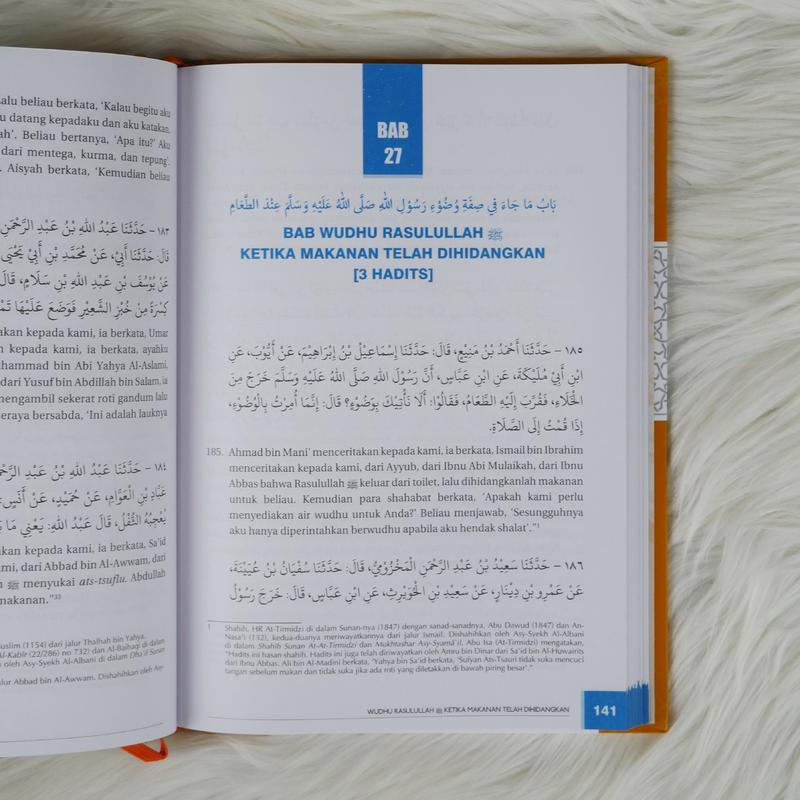 alu beliau berkata, ‘Kalau begitu aku
datang kepadaku dan aku katakan,
ah’. Beliau bertanya, ‘Apa itu?’ Aku
dari mentega, kurma, dan tepung’.
Aisyah berkata, ‘Kemudian beliau
١٨٣ – حَدَّثَنَا عَبْدُ اللهِ بْنُ عَبْدِ الرَّحْمَنِ
قَالَ: حَدَّثَنَا أَبِيْ، عَنْ مُحَمَّدِ بْنِ أَبِيْ يَحْيَى
عَنْ يُوْسُفَ بْنِ عَبْدِ اللهِ بْنِ سَلَامٍ، قَالَ
كِسْرَةً مِنْ خُبْزِ الشَّعِيْرِ فَوَضَعَ عَلَيْهَا
akan kepada kami, ia berkata, Umar
n kepada kami, ia berkata, ayahku
hammad bin Abi Yahya Al-Aslami,
dari Yusuf bin Abdillah bin Salam, ia
mengambil sekerat roti gandum lalu
seraya bersabda, ‘Ini adalah lauknya
١٨٤ – حَدَّثَنَا عَبْدُ اللهِ بْنُ عَبْدِ الرَّحْمَ
عَبَّادِ بْنِ الْعَوَّامِ، عَنْ حُمَيْدٍ، عَنْ أَنَسٍ
يُعْجِبُهُ الثُّفْلُ، قَالَ عَبْدُ اللهِ: يَعْنِي مَا
kan kepada kami, ia berkata, Sa’id
mi, dari Abbad bin Al-Awwam, dari
ﷺ menyukai ats-tsuflu. Abdullah
makanan.”³³
uslim (1154) dari jalur Thalhah bin Yahya.
Al-Kabir (22/286) no 732) dan Al-Baihaqi di dalam
oleh Asy-Syekh Al-Albani di dalam Dha’if Sunan
alur Abbad bin Al-Awwam. Dishahihkan oleh Asy-
BAB
27
بَابُ مَا جَاءَ فِي صِفَةِ وُضُوْءِ رَسُوْلِ اللهِ صَلَّى اللهُ عَلَيْهِ وَسَلَّمَ عِنْدَ الطَّعَامِ
BAB WUDHU RASULULLAH ﷺ
KETIKA MAKANAN TELAH DIHIDANGKAN
[3 HADITS]
١٨٥ – حَدَّثَنَا أَحْمَدُ بْنُ مَنِيْعٍ، قَالَ: حَدَّثَنَا إِسْمَاعِيْلُ بْنُ إِبْرَاهِيْمَ، عَنْ أَيُّوْبَ، عَنِ
ابْنِ أَبِيْ مُلَيْكَةَ، عَنِ ابْنِ عَبَّاسٍ، أَنَّ رَسُوْلَ اللهِ صَلَّى اللهُ عَلَيْهِ وَسَلَّمَ خَرَجَ مِنَ
الْخَلَاءِ، فَقُرِّبَ إِلَيْهِ الطَّعَامُ، فَقَالُوْا: أَلَا نَأْتِيْكَ بِوَضُوْءٍ؟ قَالَ: إِنَّمَا أُمِرْتُ بِالْوُضُوْءِ،
إِذَا قُمْتُ إِلَى الصَّلَاةِ.
185. Ahmad bin Mani’ menceritakan kepada kami, ia berkata, Ismail bin Ibrahim
menceritakan kepada kami, dari Ayyub, dari Ibnu Abi Mulaikah, dari Ibnu
Abbas bahwa Rasulullah ﷺ keluar dari toilet, lalu dihidangkanlah makanan
untuk beliau. Kemudian para shahabat berkata, ‘Apakah kami perlu
menyediakan air wudhu untuk Anda?’ Beliau menjawab, ‘Sesungguhnya
aku hanya diperintahkan berwudhu apabila aku hendak shalat’.”¹
١٨٦ – حَدَّثَنَا سَعِيْدُ بْنُ عَبْدِ الرَّحْمَنِ الْمَخْزُوْمِيُّ، قَالَ: حَدَّثَنَا سُفْيَانُ بْنُ عُيَيْنَةَ،
عَنْ عَمْرِو بْنِ دِيْنَارٍ، عَنْ سَعِيْدِ بْنِ الْحُوَيْرِثِ، عَنِ ابْنِ عَبَّاسٍ، قَالَ: خَرَجَ رَسُوْلُ
1 Shahih, HR At-Tirmidzi di dalam Sunan-nya (1847) dengan sanad-sanadnya, Abu Dawud (1847) dan An-
Nasa’i (132), kedua-duanya meriwayatkannya dari jalur Ismail. Dishahihkan oleh Asy-Syekh Al-Albani
di dalam Shahih Sunan At-At-Tirmidzi dan Mukhtashar Asy-Syamâ’il. Abu Isa (At-Tirmidzi) mengatakan,
“Hadits ini hasan shahih. Hadits ini juga telah diriwayatkan oleh Amru bin Dinar dari Sa’id bin Al-Huwairits
dari Ibnu Abbas. Ali bin Al-Madini berkata, ‘Yahya bin Sa’id berkata, ‘Sufyan Ats-Tsauri tidak suka mencuci
tangan sebelum makan dan tidak suka jika ada roti yang diletakkan di bawah piring besar’.”
WUDHU RASULULLAH ﷺ KETIKA MAKANAN TELAH DIHIDANGKAN
141